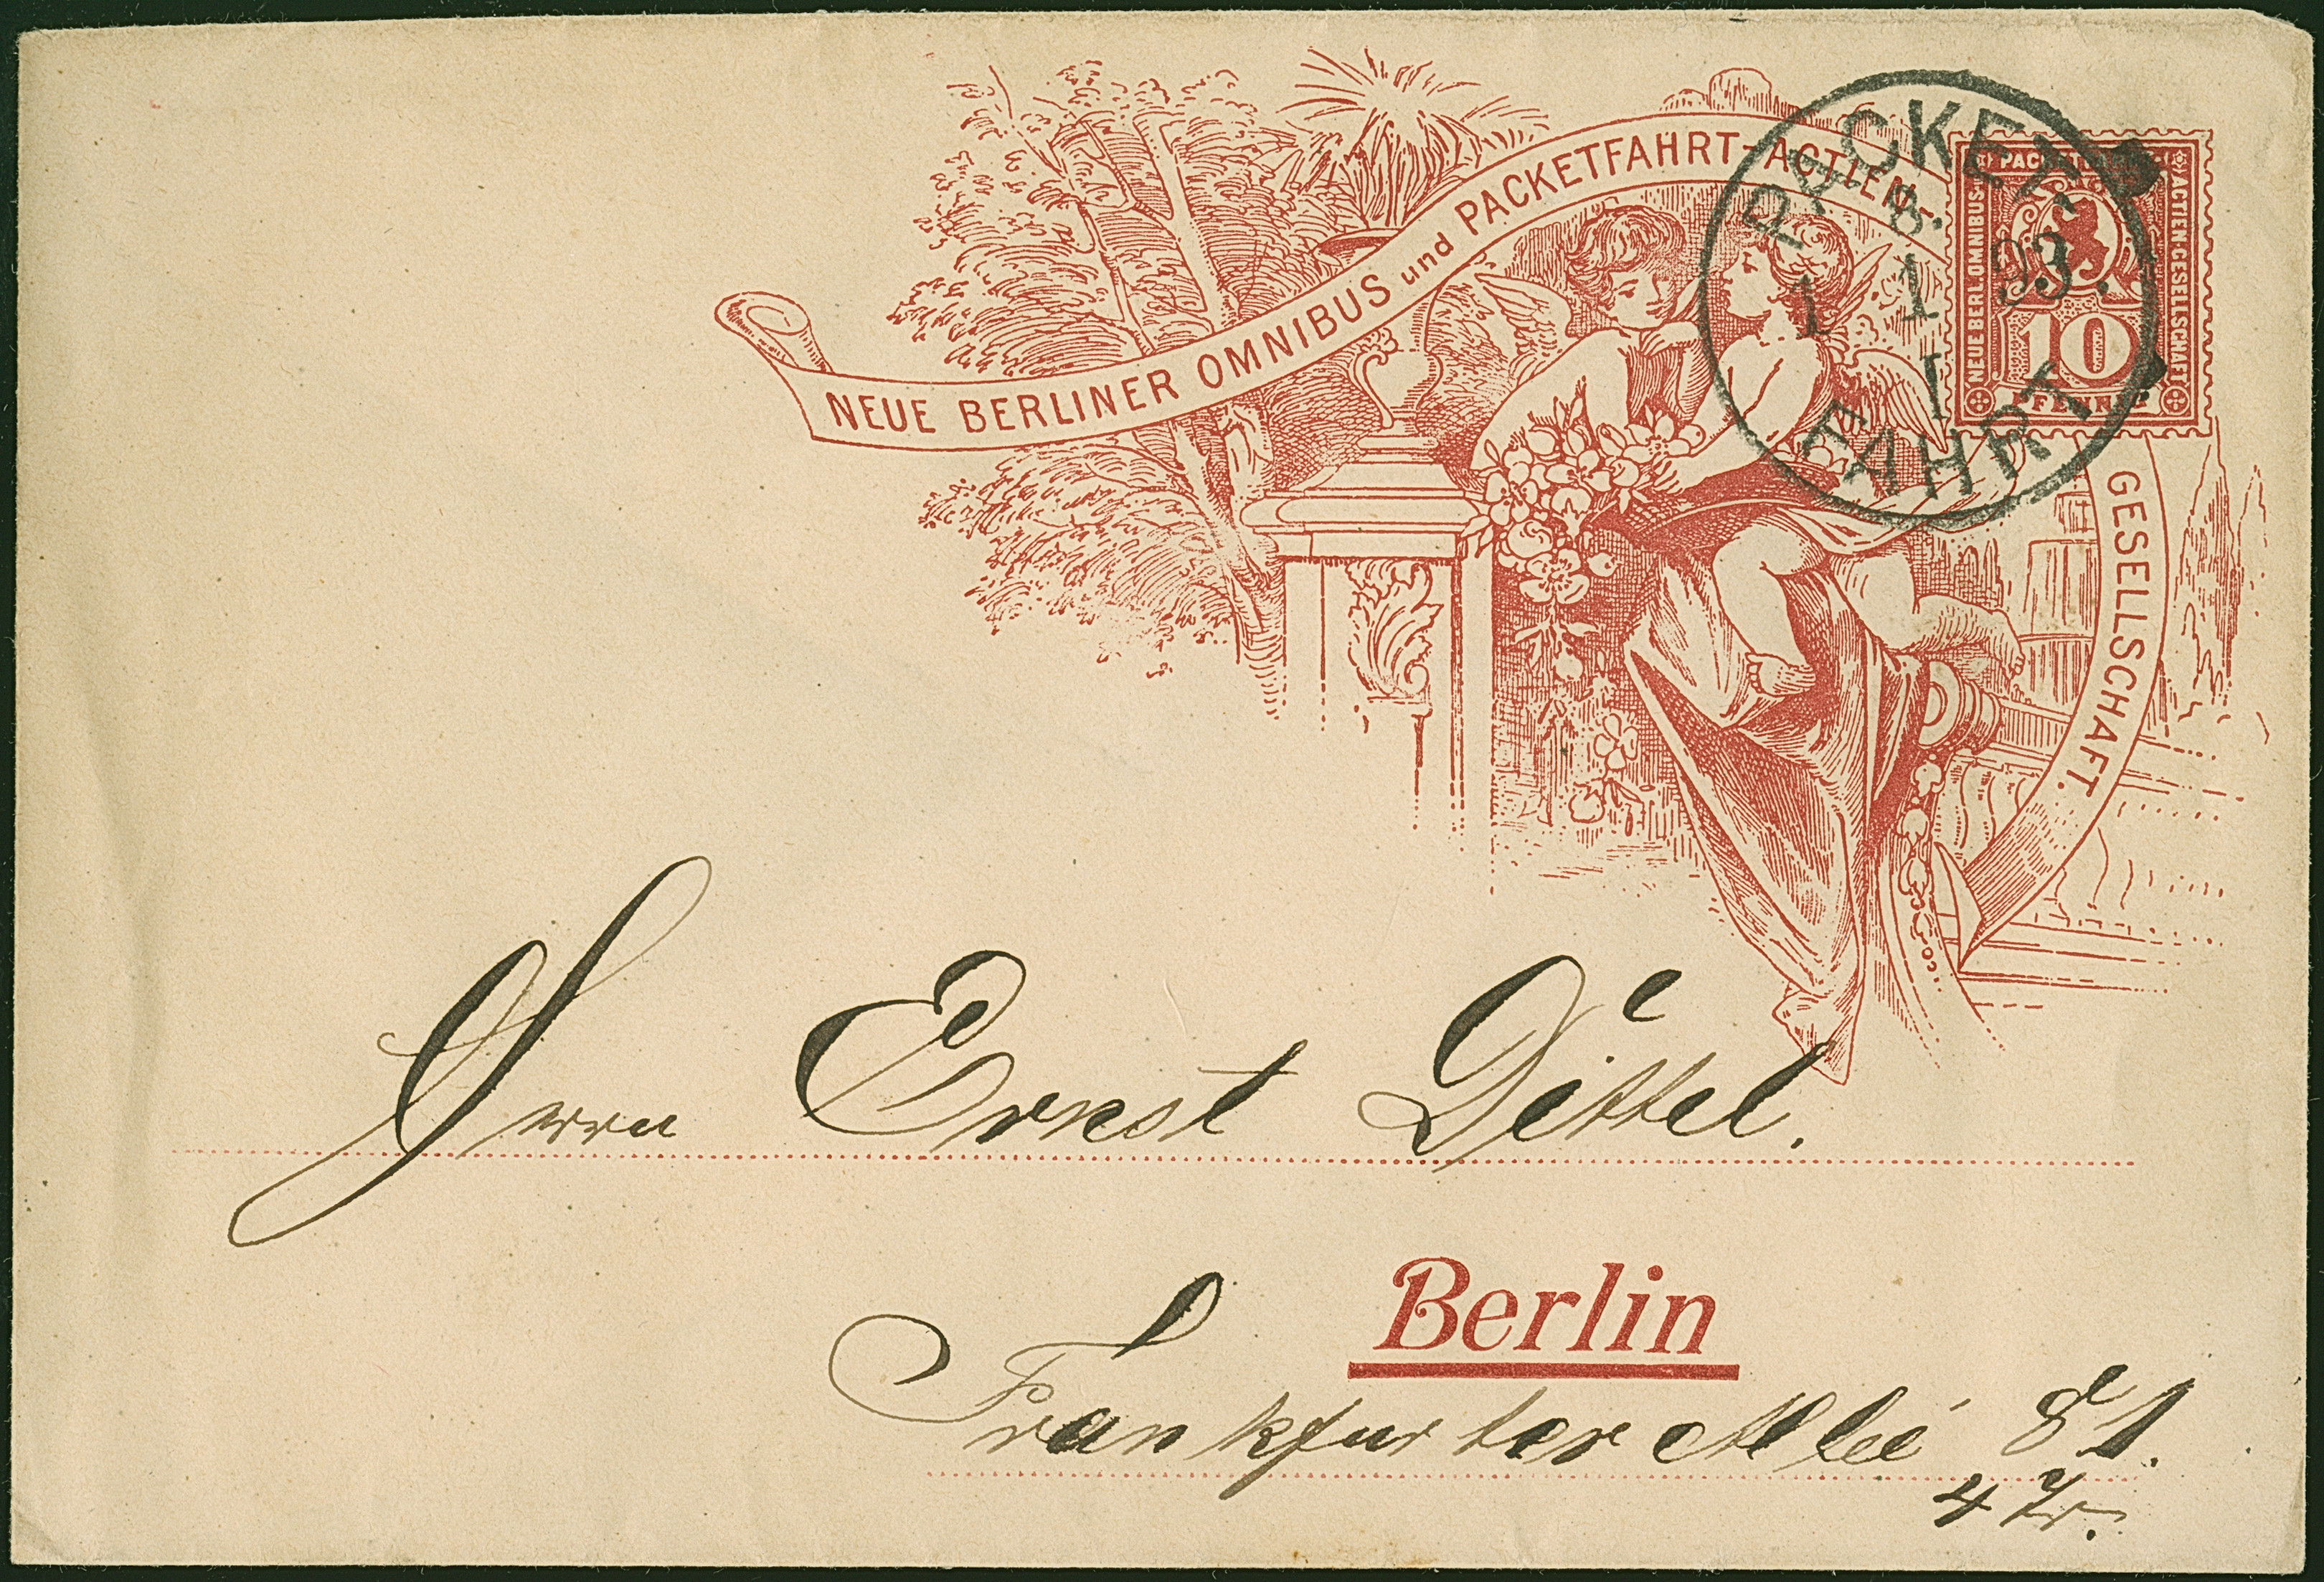 NEUE BERLINER OMNIBUS und PACKETFAHRT-ACTIEN-
GESELLSCHAFT.
NEUE BERL. OMNIBUS-
ACTIEN-GESELLSCHAFT
10
PFENNIG
PACKET
8.
1 1 93.
I
FAHRT
Herrn Ernst Dittel.
Berlin
Frankfurter Allee 81.
4 Tr.